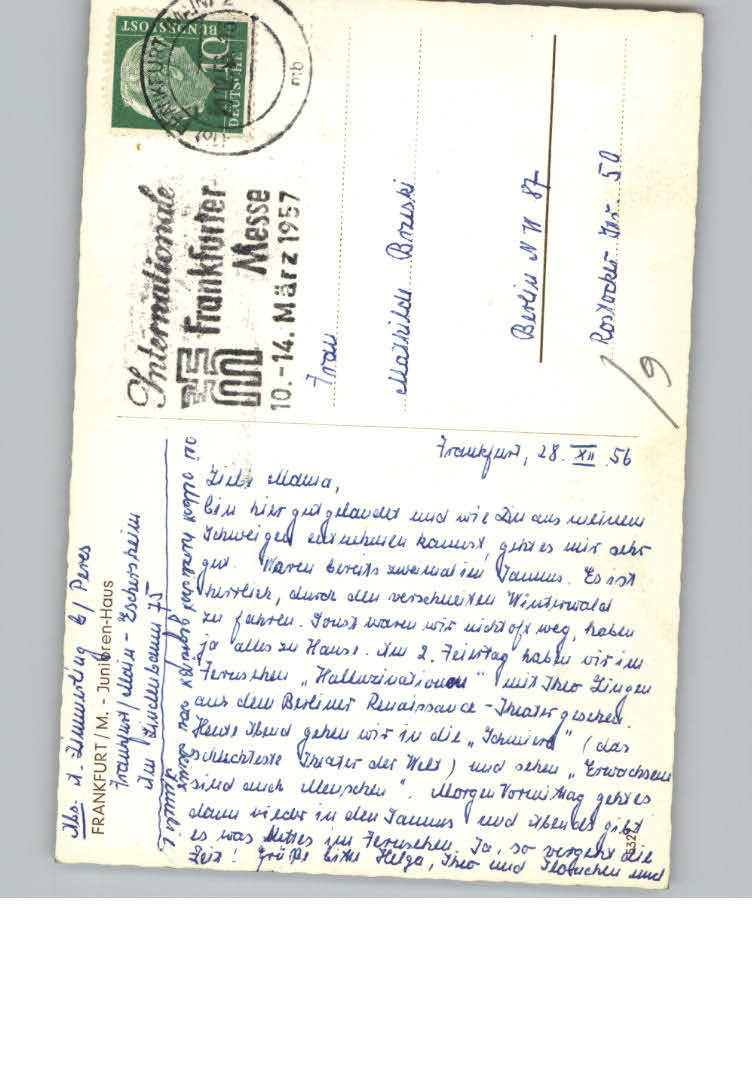 FRANKFURT
MAIN 2
mb
DEUTSCHE
BUNDESPOST
10
Internationale
Frankfurter
Messe
10.-14. März 1957
Frau
Mathilde Brzeski
Berlin N W 87
Rostocker Str. 50
/9
Abs. A. Zimmerling b/ Peres
FRANKFURT/M. - Junioren-Haus
Frankfurt/Main - Eschersheim
Am Lindenbaum 75
Frankfurt, 28. XII. 56
Liebe Mama,
bin hier gut gelandet und wie Du aus meinem
Schweigen entnehmen kannst, geht es mir sehr
gut. Waren bereits zweimal im Taunus. Es ist
herrlich, durch den verschneiten Winterwald
zu fahren. Sonst waren wir nicht oft weg, haben
ja alles zu Hause. Am 2. Feiertag haben wir im
Fernsehen "Halluzinationen" mit Theo Lingen
aus dem Berliner Renaissance-Theater gesehen.
Heute Abend gehen wir in die "Schmiere" (das
schlechteste Theater der Welt) und sehen "Erwachsene
sind auch Menschen". Morgen Vormittag geht es
dann wieder in den Taunus und abends gibt
es was Nettes im Fernsehen. Ja, so vergeht die
Zeit! Grüße bitte Helga, Theo und und